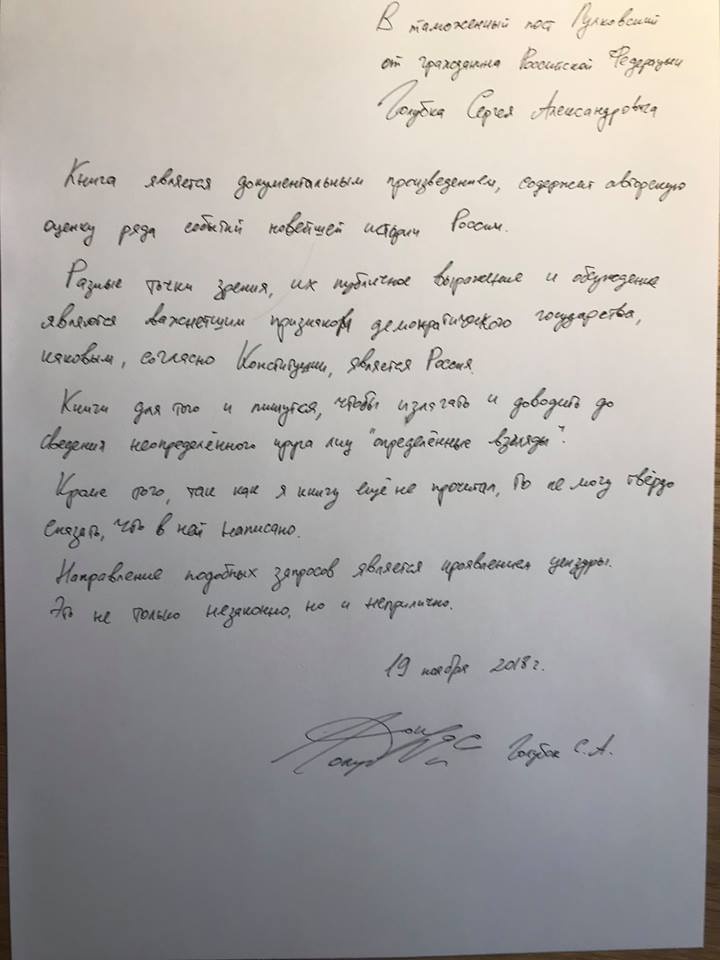 В таможенный пост Пулковский
от гражданина Российской Федерации
Голубка Сергея Александровича
Книга является документальным произведением, содержит авторскую
оценку ряда событий новейшей истории России.
Разные точки зрения, их публичное выражение и обсуждение
являются важнейшим признаком демократического государства,
каковым, согласно Конституции, является Россия.
Книги для того и пишутся, чтобы излагать и доводить до
сведения неопределённого круга лиц "определённые взгляды".
Кроме того, так как я книгу ещё не прочитал, то не могу твёрдо
сказать, что в ней написано.
Направление подобных запросов является проявлением цензуры.
Это не только незаконно, но и неприлично.
19 ноября 2018 г.
Голубок С. А.